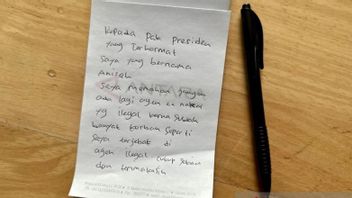 Kepada Pak Presiden
yang Terhormat
Saya yang bernama
Anisah
Saya memohon jangan
ada lagi agen
yg ilegal karna sudah
banyak korban seperti
Saya terjebak di
agen ilegal cukup
dan terimakasih